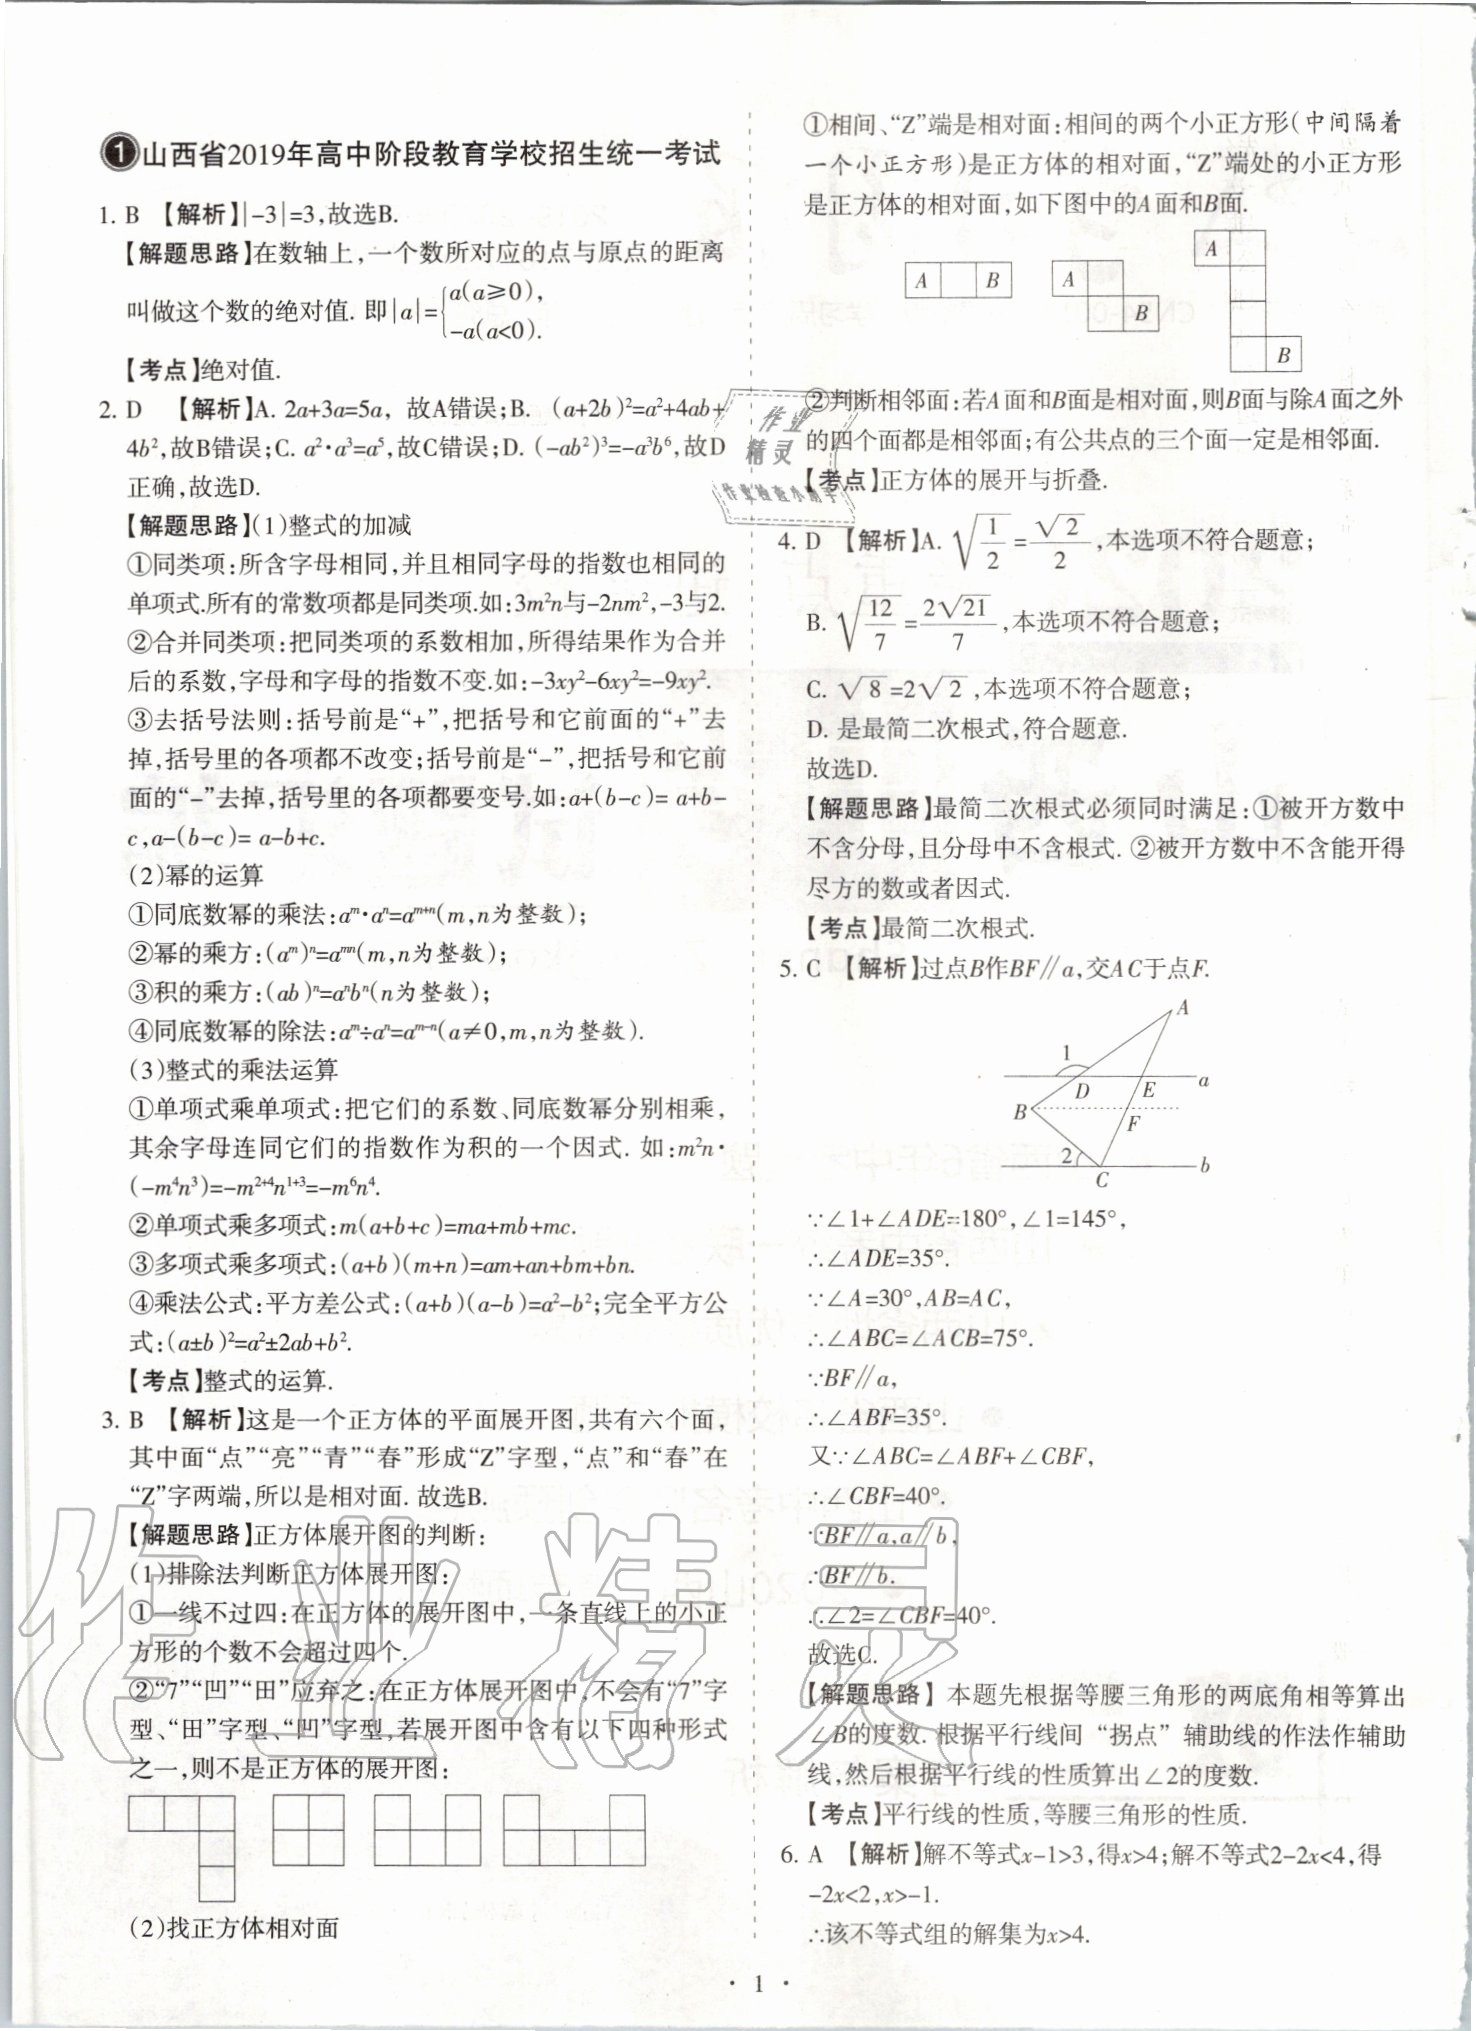 ❶山西省2019年高中阶段教育学校招生统一考试
1. B 【解析】|-3|=3,故选B.
【解题思路】在数轴上,一个数所对应的点与原点的距离
叫做这个数的绝对值. 即|a|={a(a≥0),
-a(a<0).
【考点】绝对值.
2. D 【解析】A. 2a+3a=5a, 故A错误;B. (a+2b)²=a²+4ab+
4b²,故B错误;C. a²·a³=a⁵,故C错误;D. (-ab²)³=-a³b⁶,故D
正确,故选D.
【解题思路】(1)整式的加减
①同类项:所含字母相同,并且相同字母的指数也相同的
单项式.所有的常数项都是同类项.如:3m²n与-2nm²,-3与2.
②合并同类项:把同类项的系数相加,所得结果作为合并
后的系数,字母和字母的指数不变.如:-3xy²-6xy²=-9xy².
③去括号法则:括号前是“+”,把括号和它前面的“+”去
掉,括号里的各项都不改变;括号前是“-”,把括号和它前
面的“-”去掉,括号里的各项都要变号.如:a+(b-c)= a+b-
c,a-(b-c)= a-b+c.
(2)幂的运算
①同底数幂的乘法:aᵐ·aⁿ=aᵐ⁺ⁿ(m,n为整数);
②幂的乘方:(aᵐ)ⁿ=aᵐⁿ(m,n为整数);
③积的乘方:(ab)ⁿ=aⁿbⁿ(n为整数);
④同底数幂的除法:aᵐ÷aⁿ=aᵐ⁻ⁿ(a≠0,m,n为整数).
(3)整式的乘法运算
①单项式乘单项式:把它们的系数、同底数幂分别相乘,
其余字母连同它们的指数作为积的一个因式. 如:m²n·
(-m⁴n³)=-m²⁺⁴n¹⁺³=-m⁶n⁴.
②单项式乘多项式:m(a+b+c)=ma+mb+mc.
③多项式乘多项式:(a+b)(m+n)=am+an+bm+bn.
④乘法公式:平方差公式:(a+b)(a-b)=a²-b²;完全平方公
式:(a±b)²=a²±2ab+b².
【考点】整式的运算.
3. B 【解析】这是一个正方体的平面展开图,共有六个面,
其中面“点”“亮”“青”“春”形成“Z”字型,“点”和“春”在
“Z”字两端,所以是相对面. 故选B.
【解题思路】正方体展开图的判断:
(1)排除法判断正方体展开图:
①一线不过四:在正方体的展开图中,一条直线上的小正
方形的个数不会超过四个.
②“7”“凹”“田”应弃之:在正方体展开图中,不会有“7”字
型、“田”字型、“凹”字型,若展开图中含有以下四种形式
之一,则不是正方体的展开图:
(2)找正方体相对面
①相间、“Z”端是相对面:相间的两个小正方形(中间隔着
一个小正方形)是正方体的相对面,“Z”端处的小正方形
是正方体的相对面,如下图中的A面和B面.
A B
A
B
A
B
②判断相邻面:若A面和B面是相对面,则B面与除A面之外
的四个面都是相邻面;有公共点的三个面一定是相邻面.
【考点】正方体的展开与折叠.
4. D 【解析】A. √(1/2)=√2/2,本选项不符合题意;
B. √(12/7)=2√21/7,本选项不符合题意;
C. √8=2√2,本选项不符合题意;
D. 是最简二次根式,符合题意.
故选D.
【解题思路】最简二次根式必须同时满足:①被开方数中
不含分母,且分母中不含根式. ②被开方数中不含能开得
尽方的数或者因式.
【考点】最简二次根式.
5. C 【解析】过点B作BF∥a,交AC于点F.
A
1
D E a
B
F
2
C b
∵∠1+∠ADE=180°,∠1=145°,
∴∠ADE=35°.
∵∠A=30°,AB=AC,
∴∠ABC=∠ACB=75°.
∵BF∥a,
∴∠ABF=35°.
又∵∠ABC=∠ABF+∠CBF,
∴∠CBF=40°.
∵BF∥a,a∥b,
∴BF∥b.
∴∠2=∠CBF=40°.
故选C.
【解题思路】本题先根据等腰三角形的两底角相等算出
∠B的度数. 根据平行线间“拐点”辅助线的作法作辅助
线,然后根据平行线的性质算出∠2的度数.
【考点】平行线的性质,等腰三角形的性质.
6. A 【解析】解不等式x-1>3,得x>4;解不等式2-2x<4,得
-2x<2,x>-1.
∴该不等式组的解集为x>4.
· 1 ·
作业
精灵
作业检查小助手
作业精灵